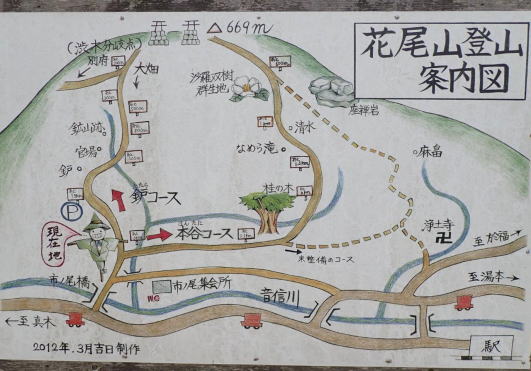 花尾山登山
案内図
△669m
(渋木分岐点)
別府
大畑
沙羅双樹
群生地
座禅岩
鉱山跡
清水
なめら滝
麻畠
宮場
鈩
桂の木
鈩コース
P
現在地
本谷コース
浄土寺
卍
至於福
未整備のコース
市ノ尾橋
市ノ尾集会所
WC
音信川
至湯本
←至真木
駅
2012年.3月吉日制作